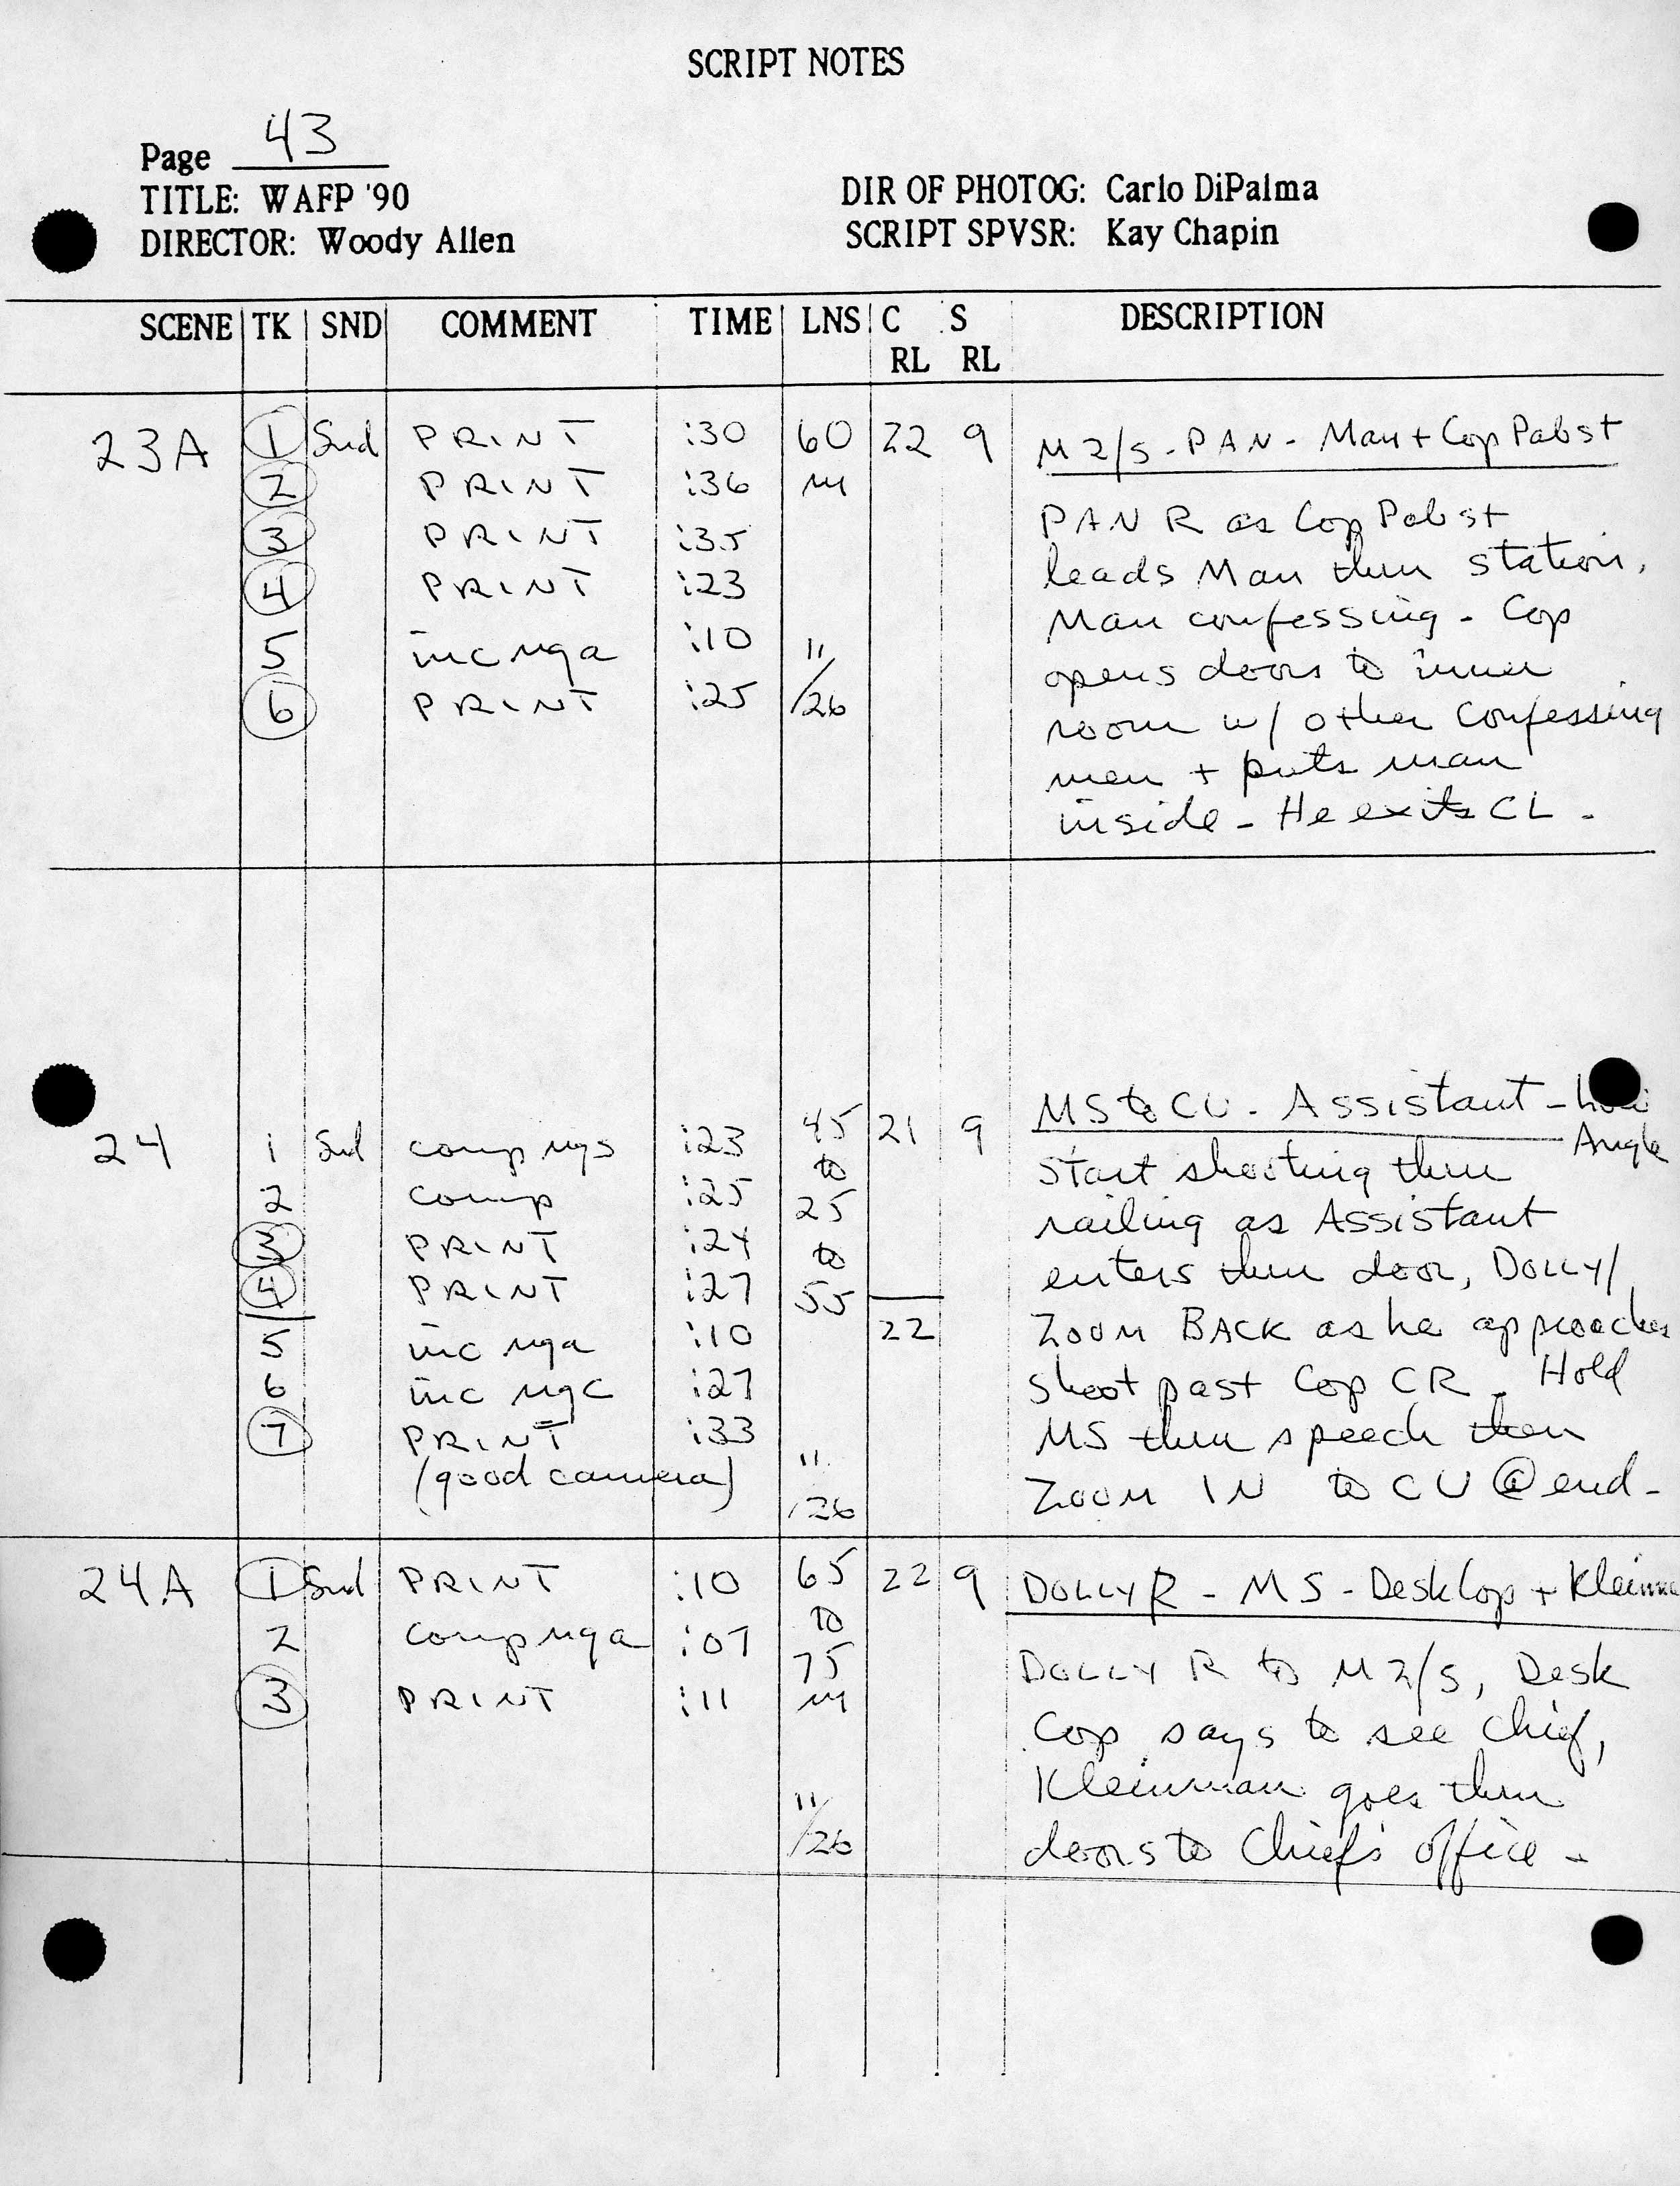 SCRIPT NOTES
Page 43
TITLE: WAFP '90
DIRECTOR: Woody Allen
DIR OF PHOTOG: Carlo DiPalma
SCRIPT SPVSR: Kay Chapin
SCENE TK SND COMMENT TIME LNS C RL S RL DESCRIPTION
23A 1 Snd PRINT :30 60 22 9 M 2/S - PAN - Man + Cop Pabst
2 PRINT :36 m
3 PRINT :35 PAN R as Cop Pabst
4 PRINT :23 leads Man thru station,
5 inc nga :10 11 Man confessing - Cop
6 PRINT :25 /26 opens doors to inner
room w/ other confessing
men + puts man
inside - He exits CL -
24 1 Snd comp ngs :23 45 21 9 MS to CU - Assistant - Low Angle
to Start shooting thru
2 comp :25 25 railing as Assistant
3 PRINT :24 to enters thru door, DOLLY/
4 PRINT :27 55
5 inc nga :10 22 ZOOM BACK as he approaches
6 inc ngc :27 shoot past Cop CR - Hold
7 PRINT :33 MS thru speech then
(good camera) 11/26 ZOOM IN to CU @ end -
24A 1 Snd PRINT :10 65 22 9 DOLLY R - MS - Desk Cop +
to
2 comp nga :07 75 DOLLY R to M 2/S, Desk
3 PRINT :11 m Cop says to see Chief,
11/26 Kleinman goes thru
doors to Chief's office -